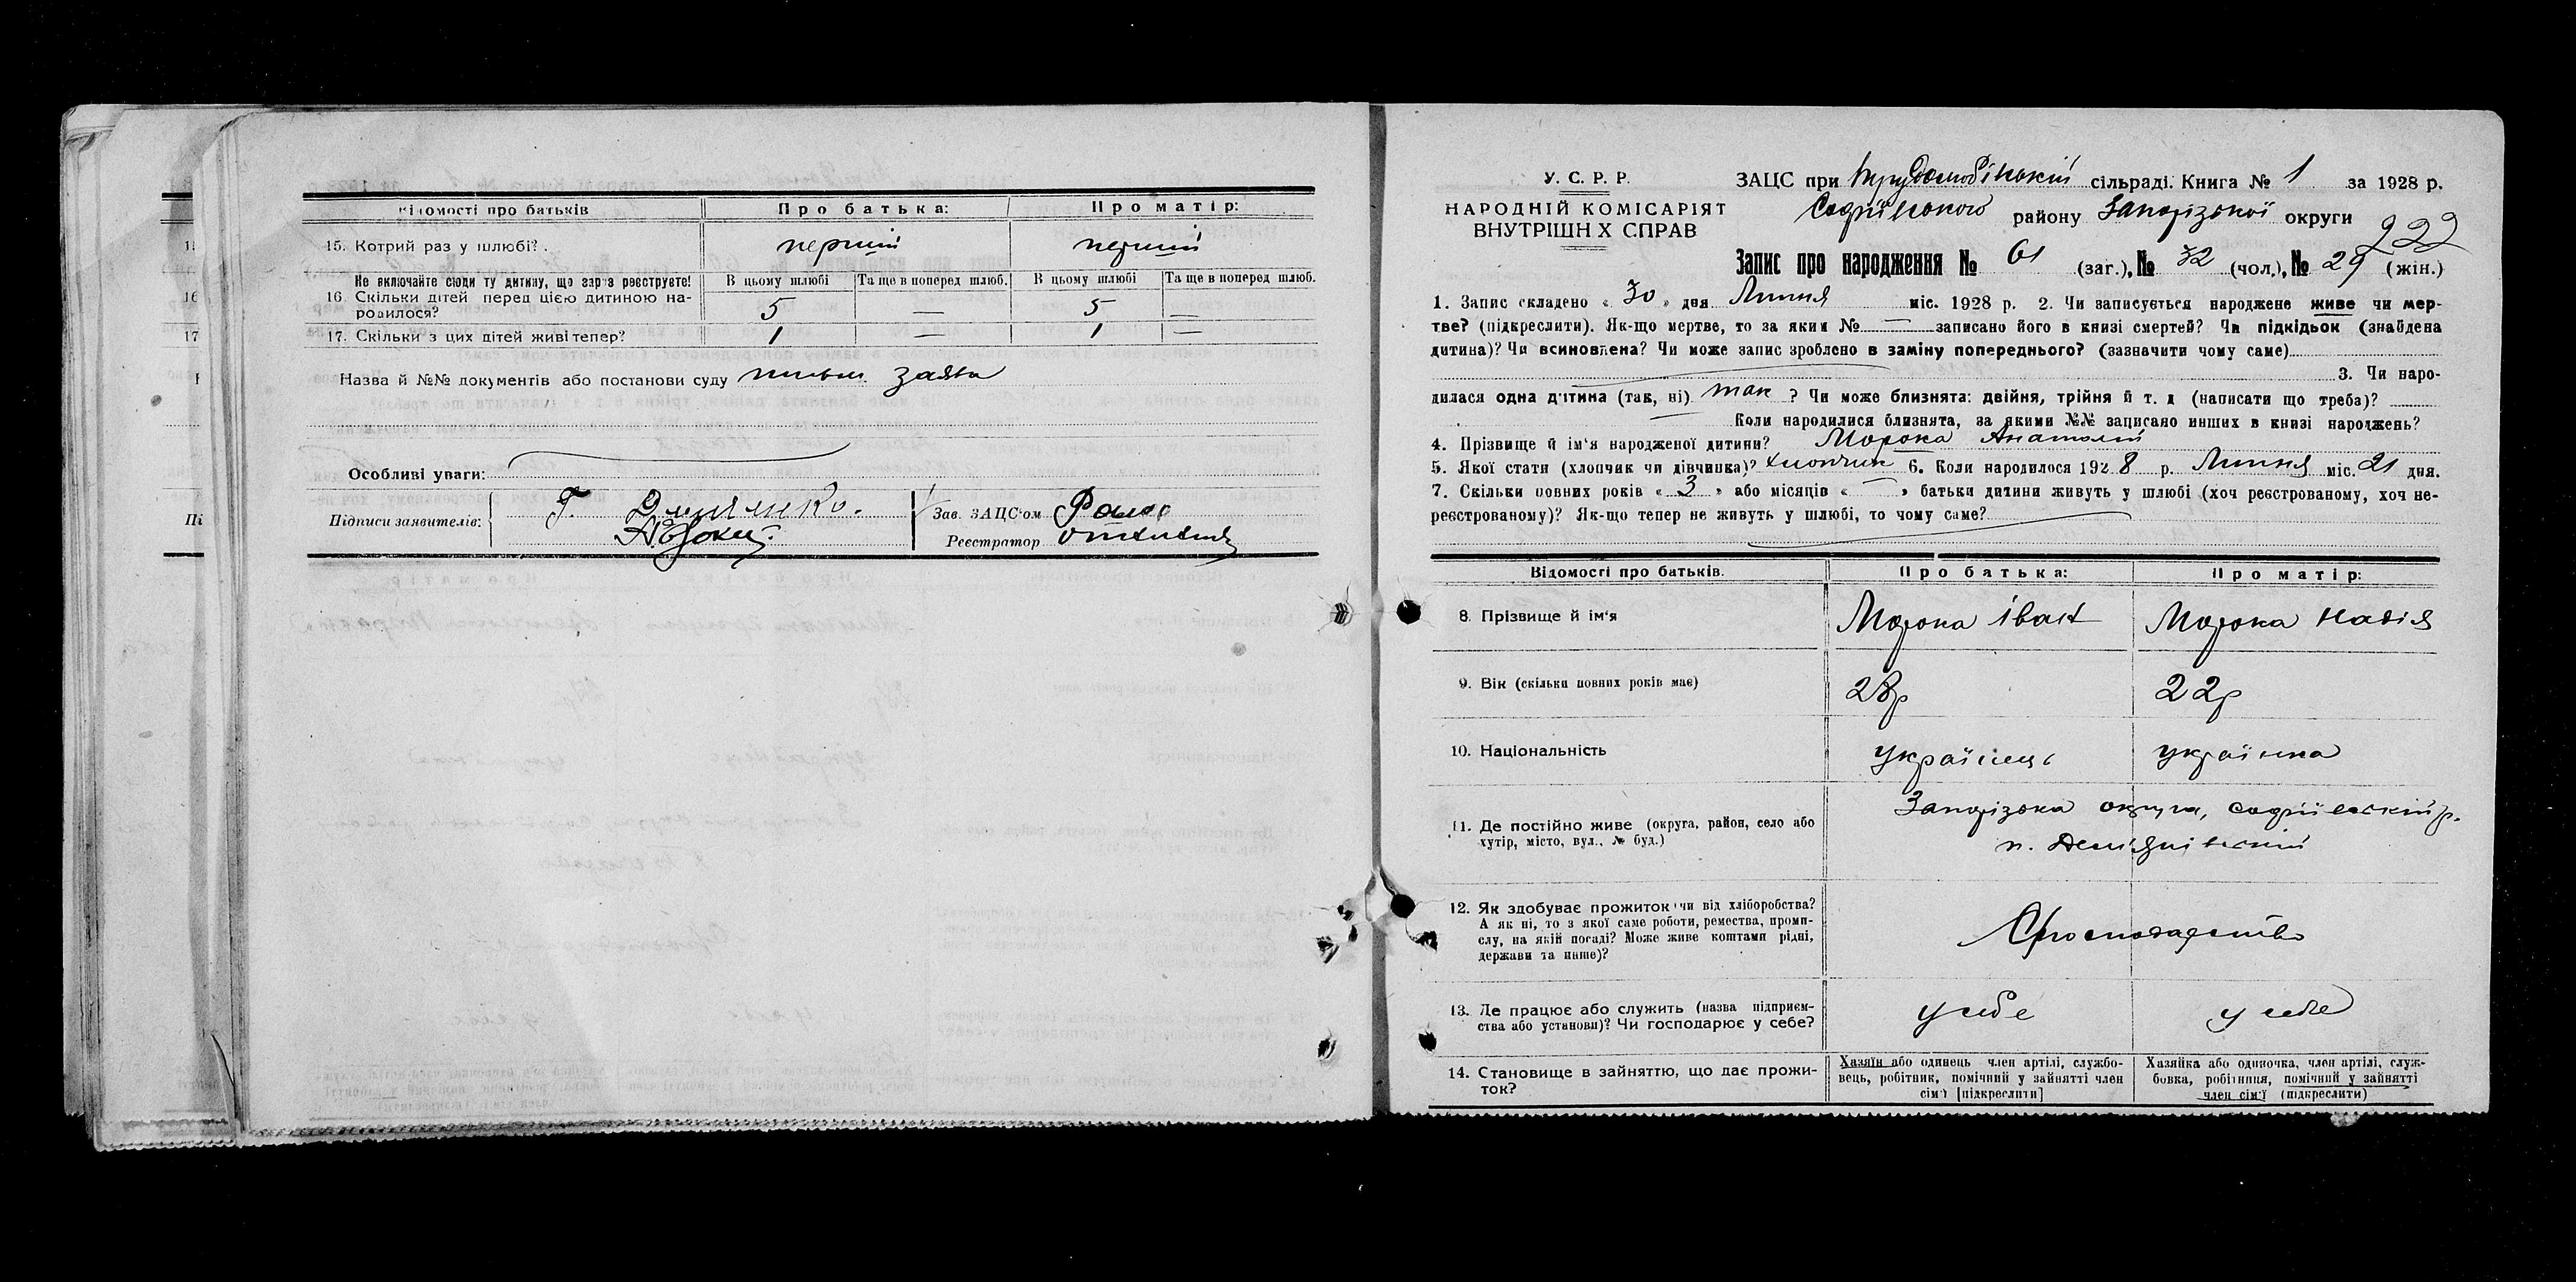 Відомості про батьків
Про батька:
Про матір:
15. Котрий раз у шлюбі?
перший
перший
Не включайте сюди ту дитину, що зараз реєструєте!
16. Скільки дітей перед цією дитиною на-
родилося?
В цьому шлюбі
Та ще в поперед шлюб.
В цьому шлюбі
Та ще в поперед шлюб.
5
—
5
—
17. Скільки з цих дітей живі тепер?
1
—
1
—
Назва й №№ документів або постанови суду заява
Особливі уваги:
Підписи заявителів:
Г.
Зав. ЗАЦС'ом
Реєстратор
У. С. Р. Р.
НАРОДНІЙ КОМІСАРІЯТ
ВНУТРІШНІХ СПРАВ
ЗАЦС при сільраді. Книга № 1 за 1928 р.
Софіївського району Запорізької округи
922
Запис про народження № 61 (заг.), № 32 (чол.), № 29 (жін.)
1. Запис складено « 30 » дня Липня міс. 1928 р. 2. Чи записується народжене живе чи мер-
тве? (підкреслити). Як-що мертве, то за яким № — записано його в книзі смертей? Чи підкідьок (знайдена
дитина)? Чи всиновлена? Чи може запис зроблено в заміну попереднього? (зазначити чому саме)
3. Чи наро-
дилася одна дитина (так, ні) так ? Чи може близнята: двійня, трійня й т. д (написати що треба)?
Коли народилися близнята, за якими №№ записано инших в книзі народжень?
4. Прізвище й ім'я народженої дитини? Морока Анатолій
5. Якої стати (хлопчик чи дівчинка)? хлопчик 6. Коли народилося 1928 р. Липня міс. 21 дня.
7. Скільки повних років « 3 » або місяців « — » батьки дитини живуть у шлюбі (хоч реєстрованому, хоч не-
реєстрованому)? Як-що тепер не живуть у шлюбі, то чому саме?
Відомості про батьків.
Про батька:
Про матір:
8. Прізвище й ім'я
Морока Іван
Морока Надія
9. Вік (скільки повних років має)
28р
22р
10. Національність
українець
українка
11. Де постійно живе (округа, район, село або
хутір, місто, вул., № буд.)
Запорізька округа, Софіївський р.
12. Як здобуває прожиток чи від хліборобства?
А як ні, то з якої саме роботи, ремества, проми-
слу, на якій посаді? Може живе коштами рідні,
держави та инше)?
13. Де працює або служить (назва підприєм-
ства або установи)? Чи господарює у себе?
у себе
у себе
14. Становище в зайняттю, що дає прожи-
ток?
Хазяїн або одинець член артілі, службо-
вець, робітник, помічний у зайнятті член
сім'ї [підкреслити]
Хазяйка або одиночка, член артілі, служ-
бовка, робітниця, помічний у зайнятті
член сім'ї (підкреслити)